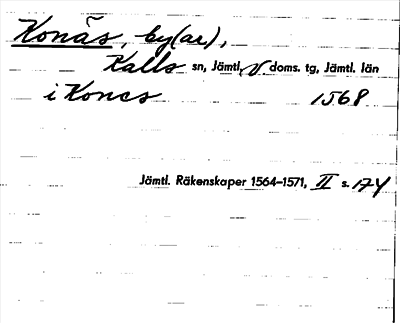 Konäs, by(ar),
Kalls sn, Jämtl. V doms. tg, Jämtl. län
i Koncs 1568
Jämtl. Räkenskaper 1564–1571, II s. 174